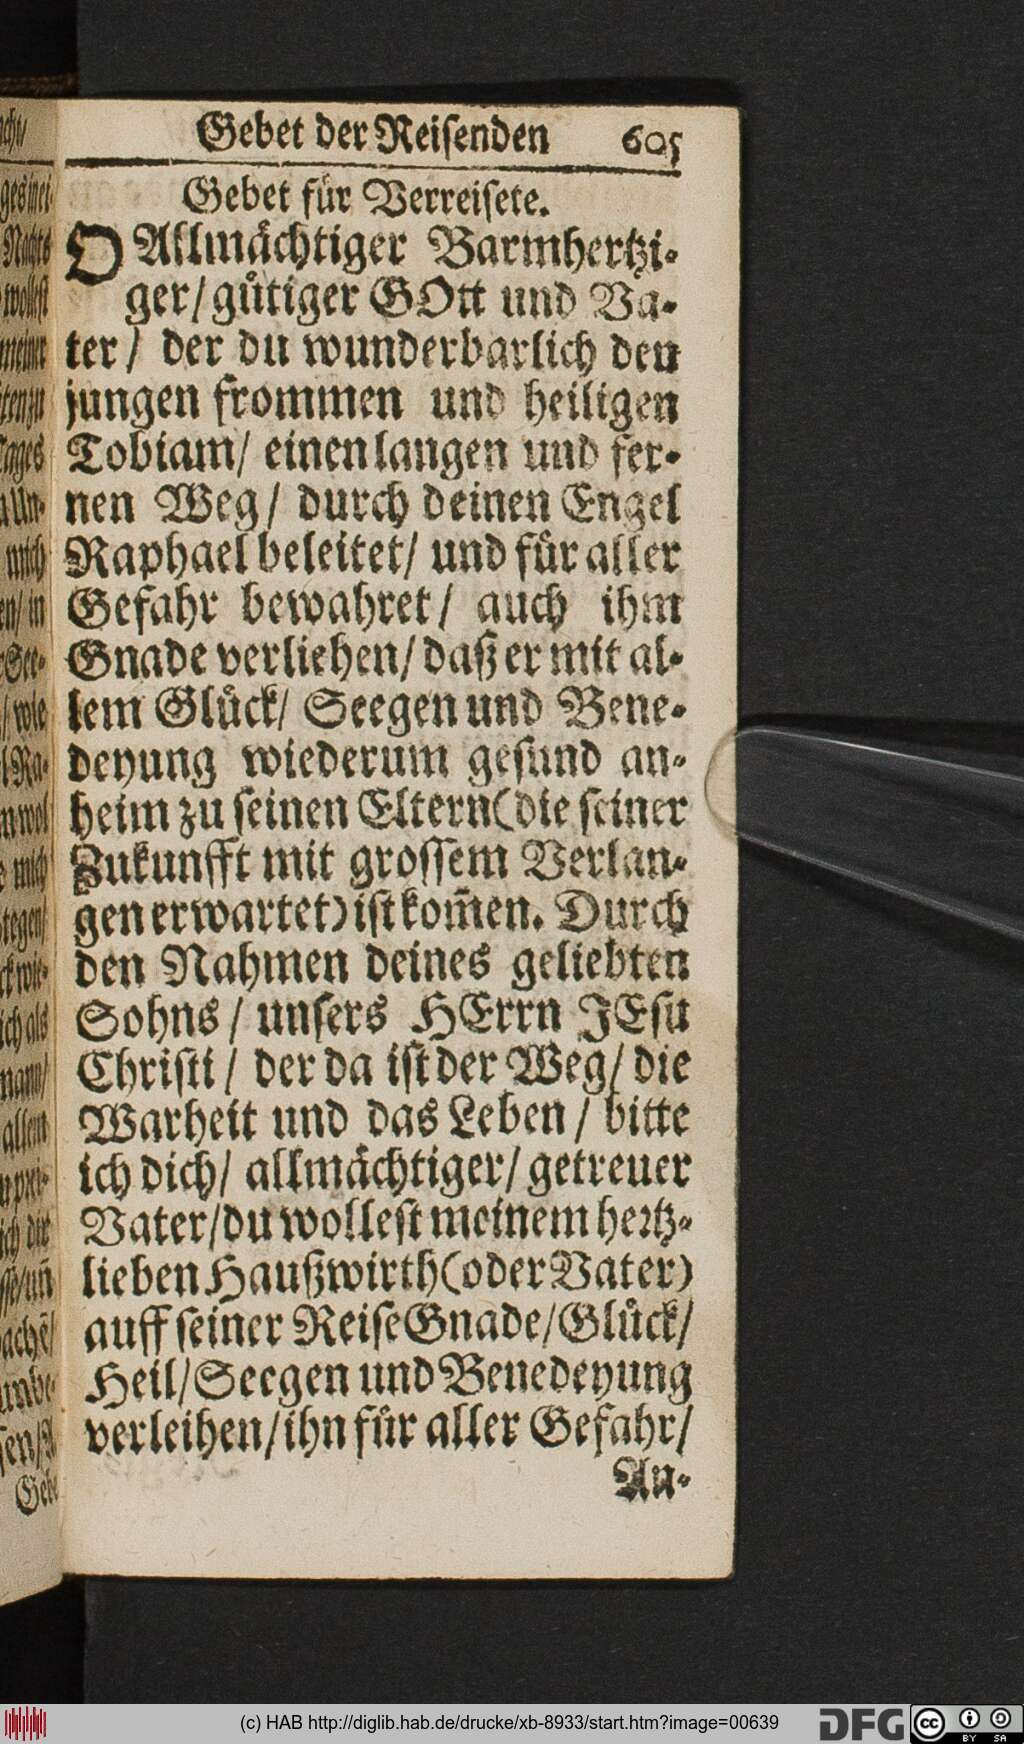 Gebet der Reisenden 605
Gebet für Verreisete.
O Allmächtiger Barmhertzi-
ger/ gütiger GOtt und Va-
ter/ der du wunderbarlich den
jungen frommen und heiligen
Tobiam/ einen langen und fer-
nen Weg/ durch deinen Engel
Raphael beleitet/ und für aller
Gefahr bewahret/ auch ihm
Gnade verliehen/ daß er mit al-
lem Glück/ Seegen und Bene-
deyung wiederum gesund an-
heim zu seinen Eltern (die seiner
Zukunfft mit grossem Verlan-
gen erwartet) ist kom̃en. Durch
den Nahmen deines geliebten
Sohns/ unsers HErrn JEsu
Christi/ der da ist der Weg/ die
Warheit und das Leben/ bitte
ich dich/ allmächtiger/ getreuer
Vater/ du wollest meinem hertz-
lieben Haußwirth (oder Vater)
auff seiner Reise Gnade/ Glück/
Heil/ Seegen und Benedeyung
verleihen/ ihn für aller Gefahr/
An-
(c) HAB http://diglib.hab.de/drucke/xb-8933/start.htm?image=00639
DFG
cc BY SA